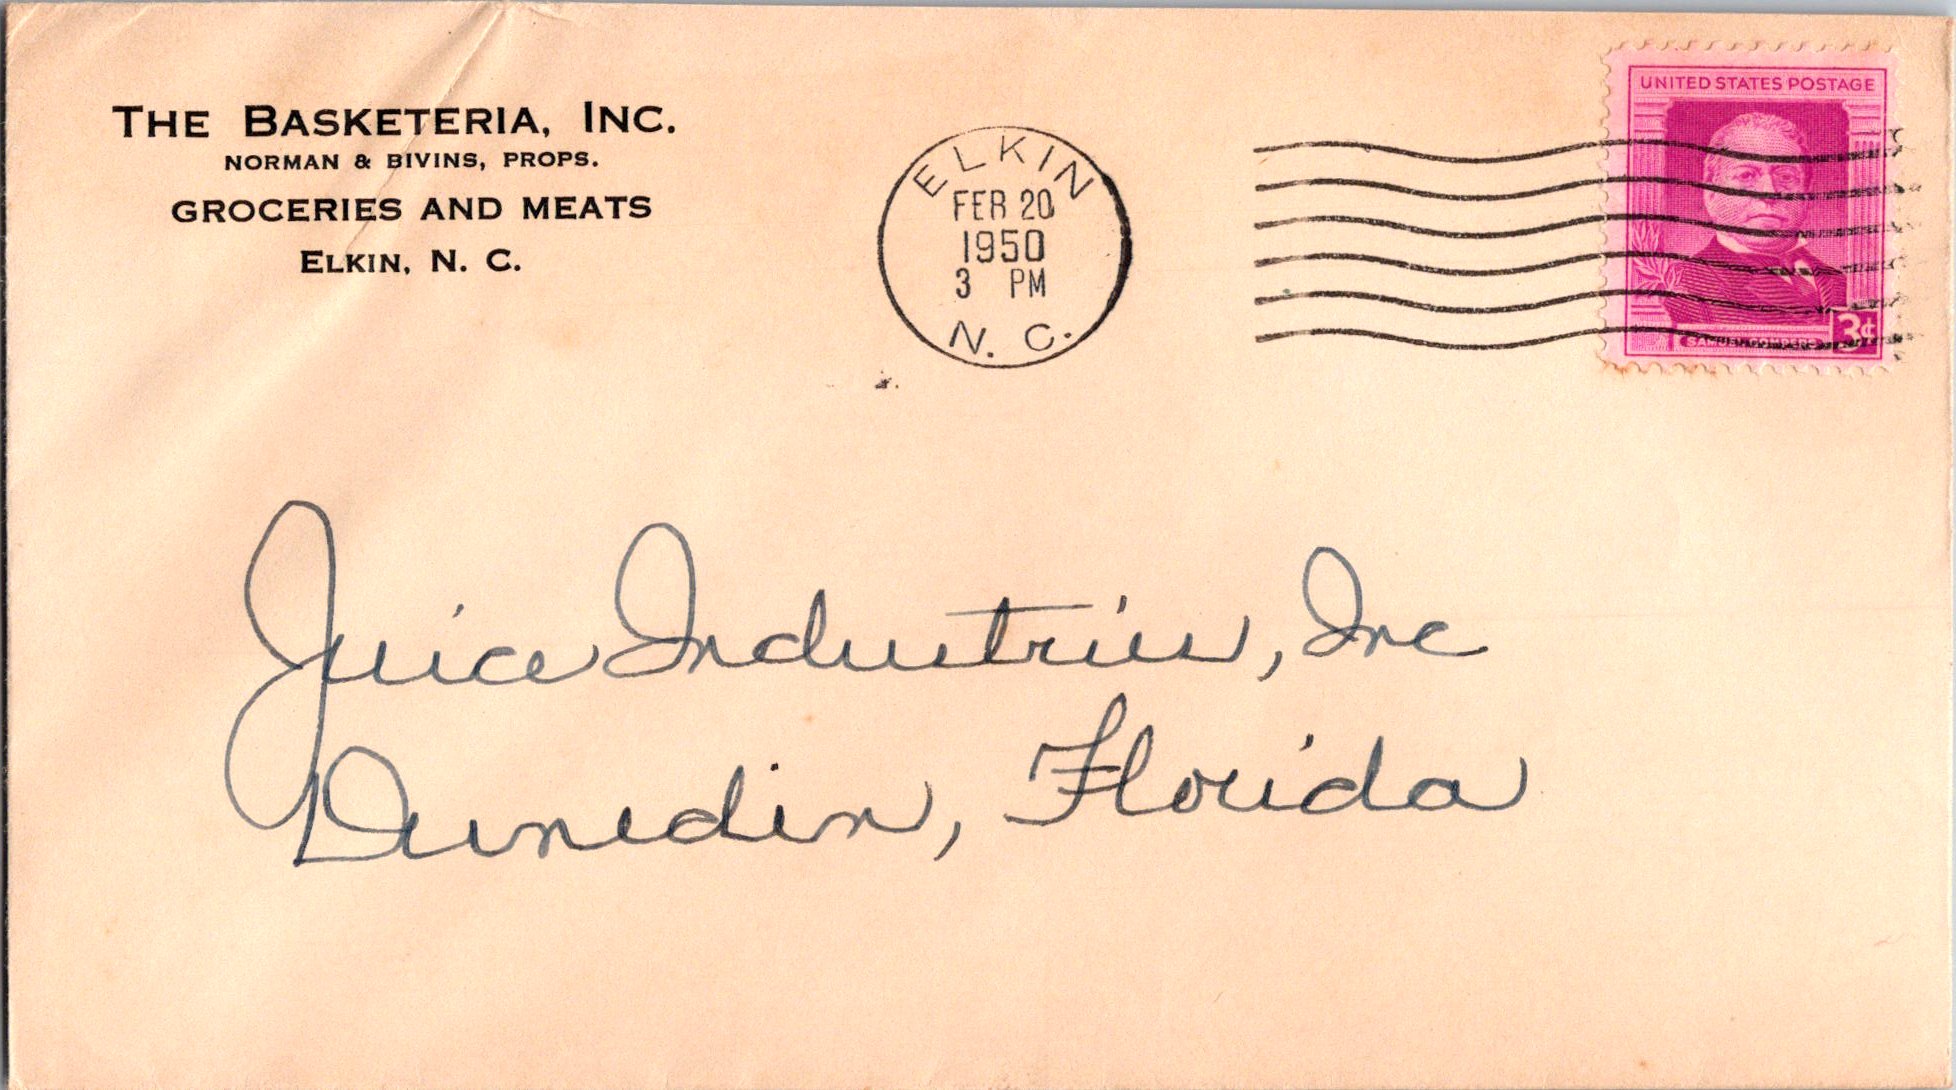 THE BASKETERIA, INC.
NORMAN & BIVINS, PROPS.
GROCERIES AND MEATS
ELKIN, N. C.
ELKIN
FEB 20
1950
3 PM
N. C.
UNITED STATES POSTAGE
3¢
SAMUEL GOMPERS
Juice Industries, Inc
Dunedin, Florida